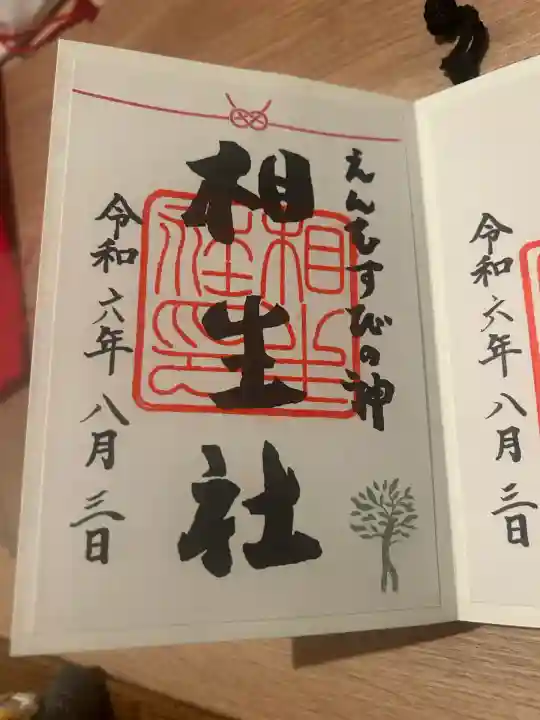 えんむすびの神
相生社
令和六年八月三日
令和六年八月三日